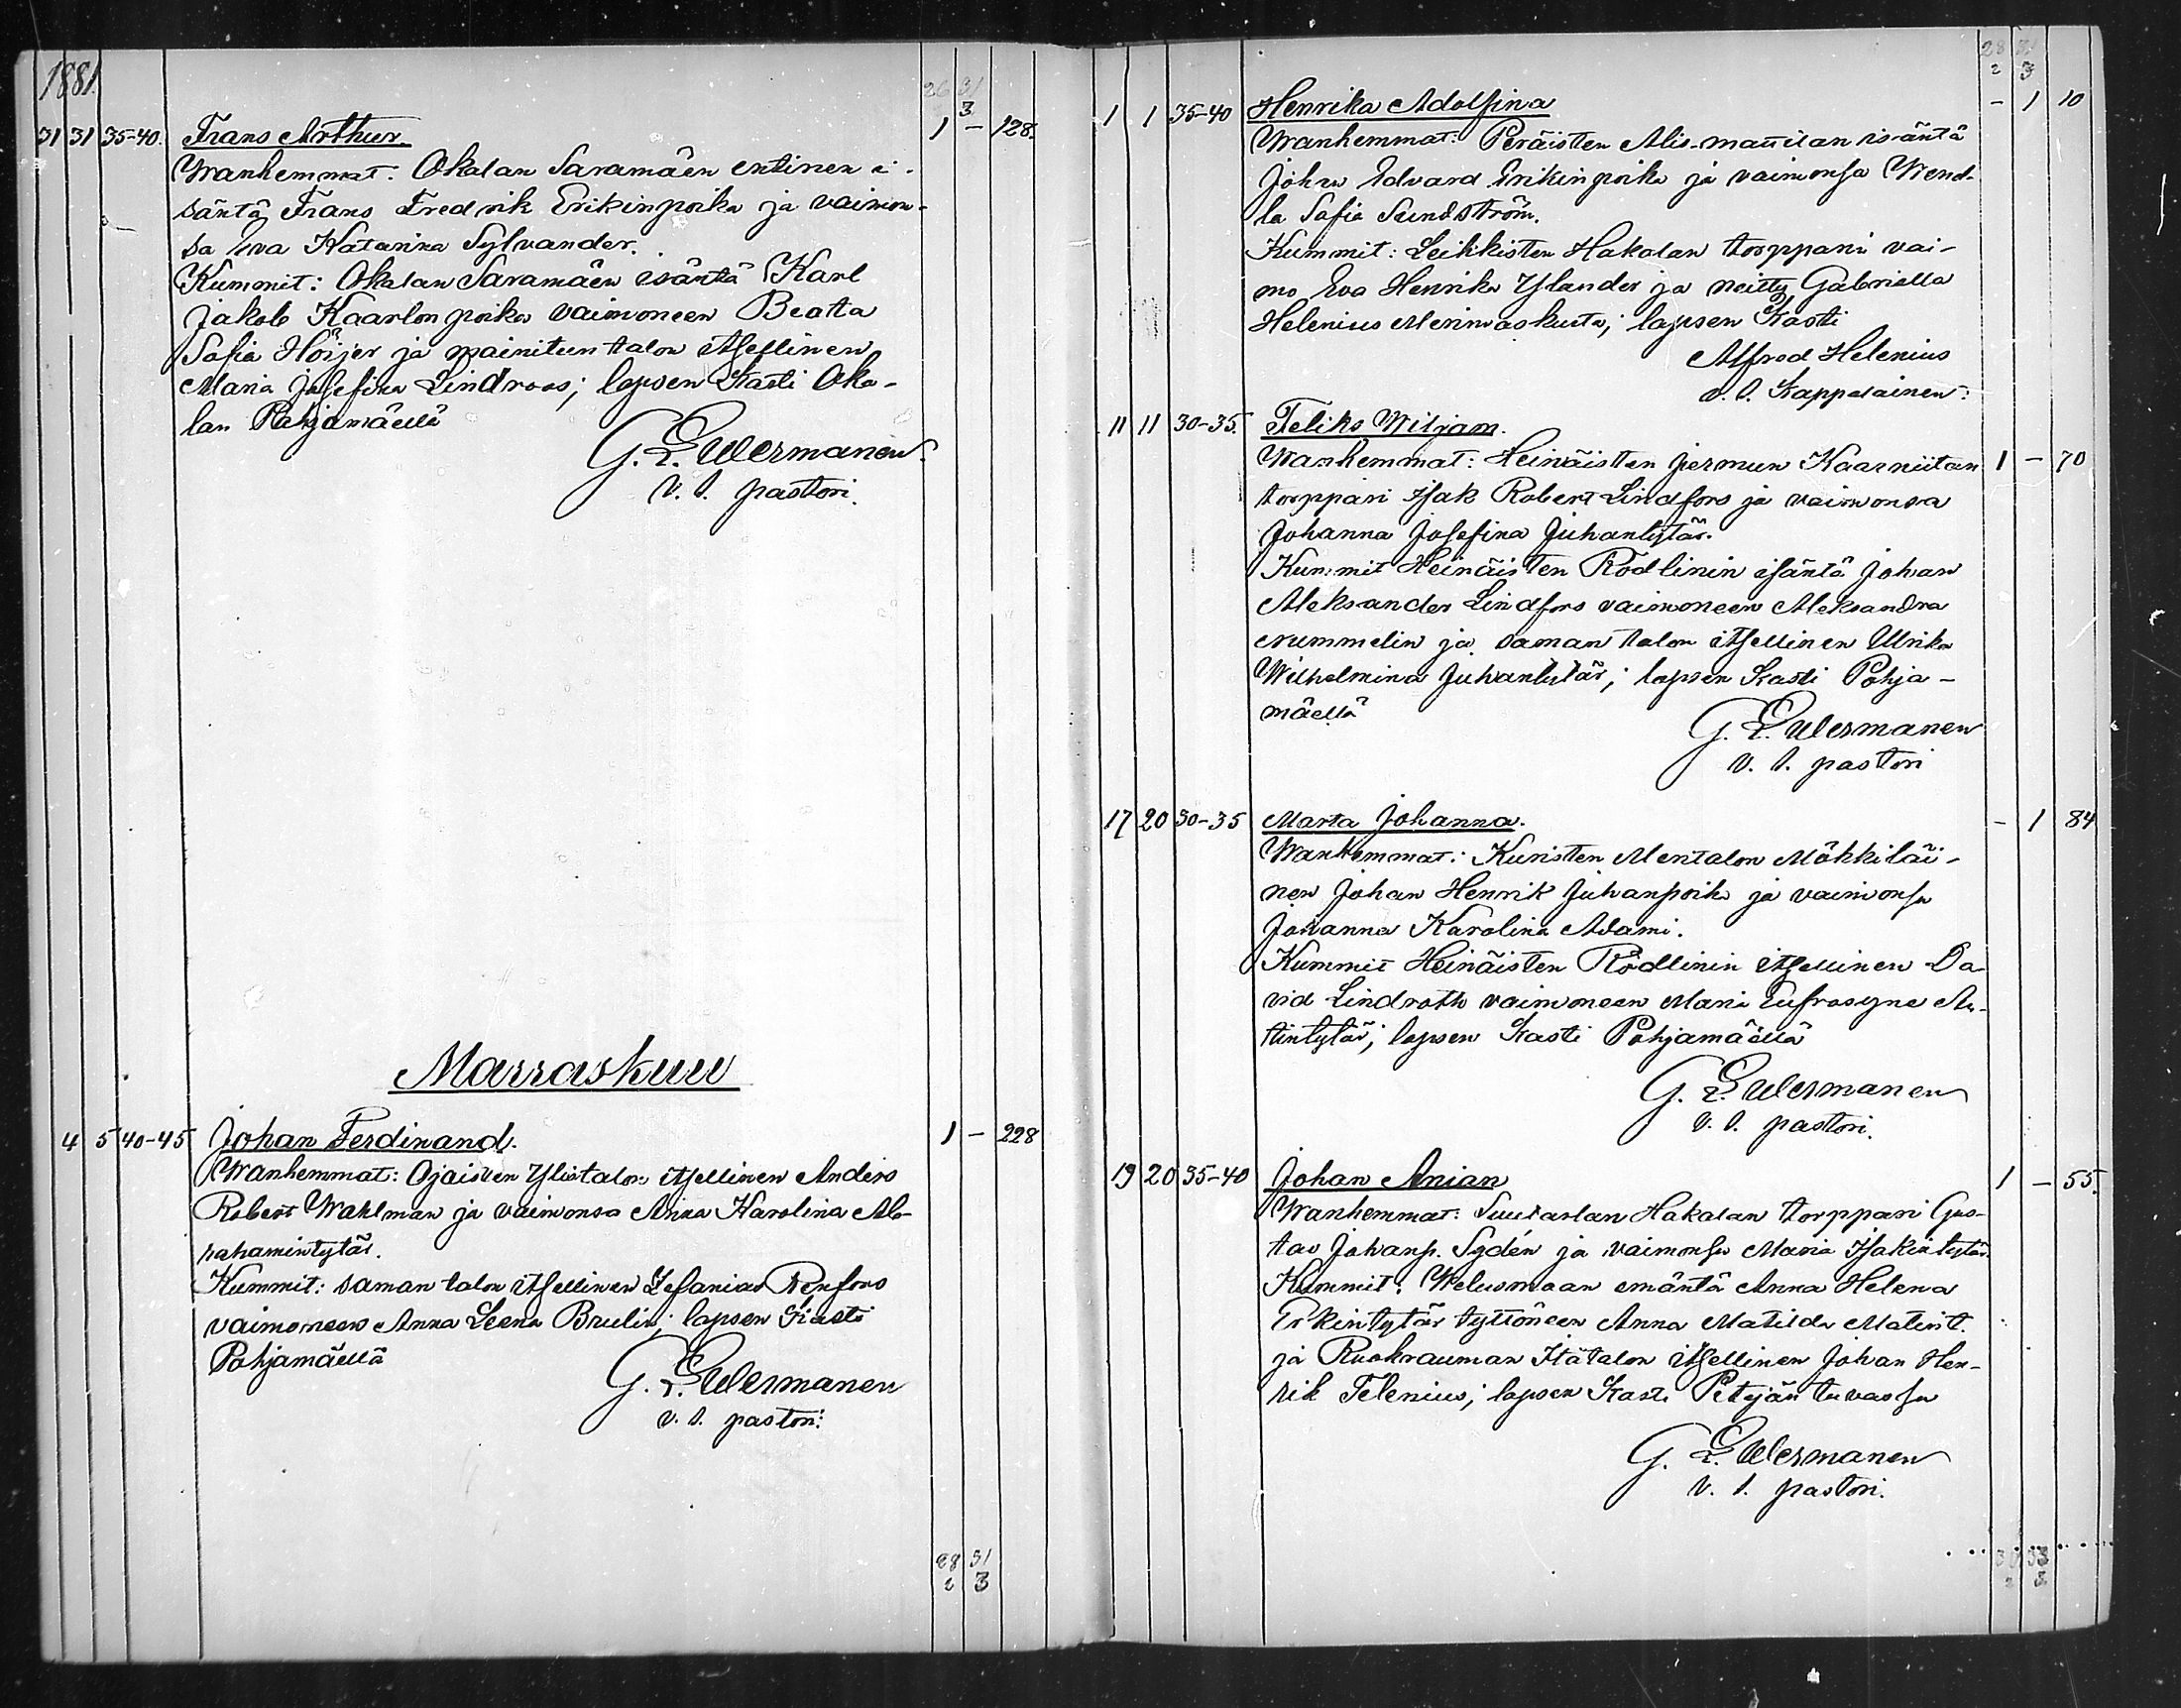 1881.
26 31
3
31 31 35-40. Frans Arthur. 1 - 128.
Wanhemmat: Okalan Saramäen entinen i-
säntä Frans Fredrik Erikinpoika ja vaimon-
sa Eva Katarina Sylvander.
Kummit: Okalan Saramäen isäntä Karl
Jakob Kaarlonpoika vaimoneen Beata
Sofia Höijer ja mainitun talon itsellinen
Maria Josefina Lindroos; lapsen kasti Oka-
lan Pohjamäellä
G. E. Wermanen.
v. t. pastori.
Marraskuu
4 5 40-45 Johan Ferdinand. 1 - 228
Wanhemmat: Ojaisten Ylistalon itsellinen Anders
Robert Wahlman ja vaimonsa Anna Karolina Ab-
rahamintytär.
Kummit: saman talon itsellinen Sefanias Renfors
vaimoneen Anna Leena Brulin; lapsen kasti
Pohjamäellä
G. E. Wermanen
v. t. pastori.
28 31
2 3
28 31
2 3
1 1 35-40 Henrika Adolfina - 1 10
Wanhemmat: Peräisten Alis-mattilan isäntä
Johan Edvard Erikinpoika ja vaimonsa Wend-
la Sofia Sundström.
Kummit: Leikkisten Hakalan torppari vai-
mo Eva Henrika Ylander ja neitty Gabriella
Helenius Merimaskusta; lapsen kasti
Alfred Helenius
v. t. Kappalainen.
11 11 30-35. Feliks Wiljam.
Wanhemmat: Heinäisten Jermun Kaarniitan 1 - 70
torppari Isak Robert Lindfors ja vaimonsa
Johanna Josefina Juhantytär.
Kummit Heinäisten Rodlinin isäntä Johan
Aleksander Lindfors vaimoneen Aleksandra
Nummelin ja saman talon itsellinen Ulrika
Wilhelmina Juhantytär; lapsen kasti Pohja-
mäellä
G. E. Wermanen
v. t. pastori
17 20 30-35 Marta Johanna. - 1 84
Wanhemmat: Kuristen Mentalon Mökkiläi-
nen Johan Henrik Juhanpoika ja vaimonsa
Johanna Karolina Adami.
Kummit Heinäisten Rodlinin itsellinen Da-
vid Lindroth vaimoneen Maria Eufrosyne An-
tintytär; lapsen kasti Pohjamäellä
G. E. Wermanen
v. t. pastori.
19 20 35-40 Johan Anian 1 - 55.
Wanhemmat: Hakalan torppari Gus-
tav Johanp. Sydén ja vaimonsa Maria Isakintytär.
Kummit: Welusmaan emäntä Anna Helena
Erkintytär tyttöneen Anna Matilda Matint.
ja Ruokrauman Itätalon itsellinen Johan Hen-
rik Telenius; lapsen kasti Petäjän tuvassa
G. E. Wermanen
v. t. pastori.
33
2 3